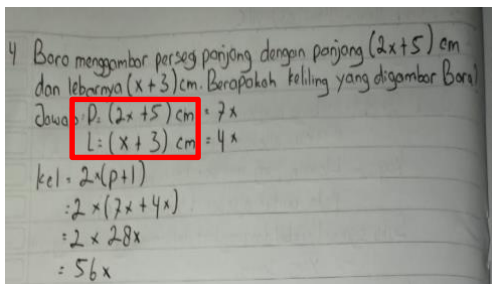 4 Bara menggambar persegi panjang dengan panjang (2x+5) cm
dan lebarnya (x+3) cm. Berapakah keliling yang digambar Bara?
Jawab: P: (2x+5) cm = 7x
L: (x+3) cm = 4x
kel = 2x(p+l)
= 2x(7x+4x)
= 2x28x
= 56x